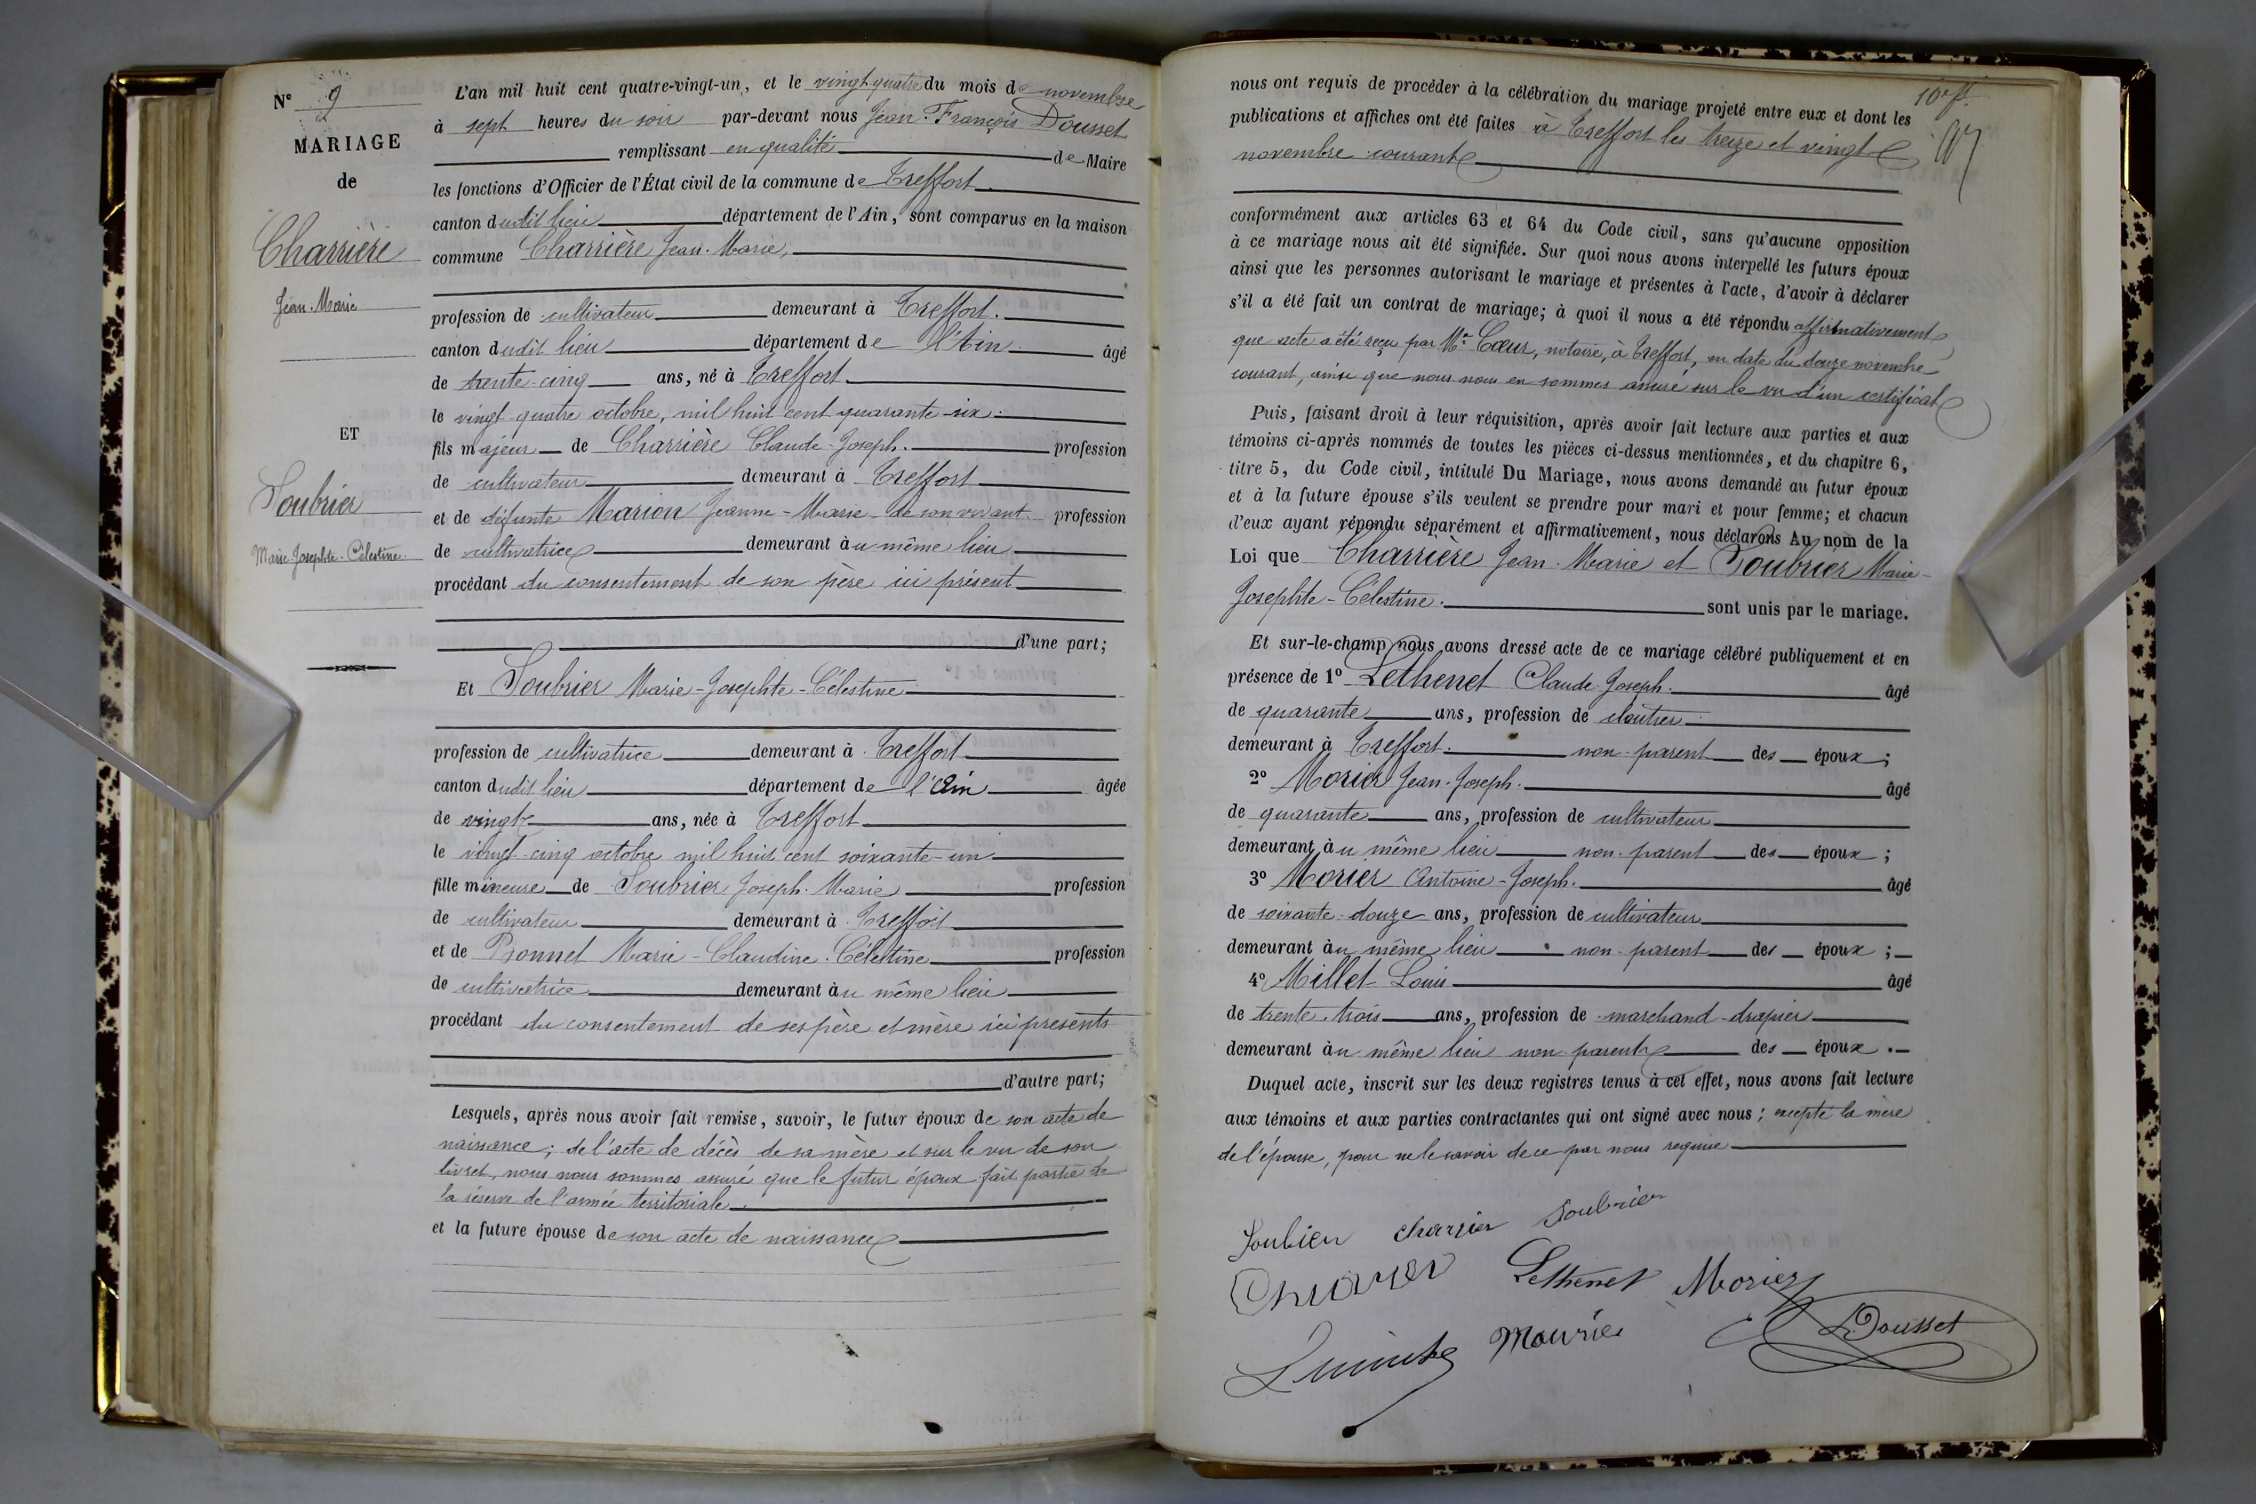 N° 9
MARIAGE
de
Charrière
Jean-Marie
ET
Soubrier
Marie-Josephte-Célestine
L'an mil huit cent quatre-vingt-un, et le vingt-quatre du mois de novembre
à sept heures du soir par-devant nous Jean-François Dousset
remplissant en qualité de Maire
les fonctions d'Officier de l'État civil de la commune de Treffort
canton dudit lieu département de l'Ain, sont comparus en la maison
commune Charrière Jean-Marie,
profession de cultivateur demeurant à Treffort.
canton dudit lieu département de l'Ain âgé
de trente-cinq ans, né à Treffort
le vingt-quatre octobre, mil huit cent quarante-six.
fils majeur de Charrière Claude-Joseph. profession
de cultivateur demeurant à Treffort
et de défunte Marion Jeanne-Marie de son vivant profession
de cultivatrice demeurant au même lieu
procédant du consentement de son père ici présent
d'une part;
Et Soubrier Marie-Josephte-Célestine
profession de cultivatrice demeurant à Treffort
canton dudit lieu département de l'Ain âgée
de vingt ans, née à Treffort
le vingt-cinq octobre mil huit cent soixante-un
fille mineure de Soubrier Joseph-Marie profession
de cultivateur demeurant à Treffort
et de Bonnet Marie-Claudine-Célestine profession
de cultivatrice demeurant au même lieu
procédant du consentement de ses père et mère ici présents
d'autre part;
Lesquels, après nous avoir fait remise, savoir, le futur époux de son acte de
naissance; de l'acte de décès de sa mère et sur le vu de son
livret, nous nous sommes assuré que le futur époux fait partie de
la réserve de l'armée territoriale.
et la future épouse de son acte de naissance
10e ft.
nous ont requis de procéder à la célébration du mariage projeté entre eux et dont les
publications et affiches ont été faites à Treffort les treize et vingt
novembre courant
conformément aux articles 63 et 64 du Code civil, sans qu'aucune opposition
à ce mariage nous ait été signifiée. Sur quoi nous avons interpellé les futurs époux
ainsi que les personnes autorisant le mariage et présentes à l'acte, d'avoir à déclarer
s'il a été fait un contrat de mariage; à quoi il nous a été répondu affirmativement
que acte a été reçu par Me Cœur, notaire, à Treffort, en date du douze novembre
courant, ainsi que nous nous en sommes assuré sur le vu d'un certificat
Puis, faisant droit à leur réquisition, après avoir fait lecture aux parties et aux
témoins ci-après nommés de toutes les pièces ci-dessus mentionnées, et du chapitre 6,
titre 5, du Code civil, intitulé Du Mariage, nous avons demandé au futur époux
et à la future épouse s'ils veulent se prendre pour mari et pour femme; et chacun
d'eux ayant répondu séparément et affirmativement, nous déclarons Au nom de la
Loi que Charrière Jean-Marie et Soubrier Marie-
Josephte-Célestine. sont unis par le mariage.
Et sur-le-champ nous avons dressé acte de ce mariage célébré publiquement et en
présence de 1° Lethenet Claude-Joseph. âgé
de quarante ans, profession de cloutier
demeurant à Treffort. non-parent des époux;
2° Morier Jean-Joseph. âgé
de quarante ans, profession de cultivateur
demeurant au même lieu non-parent des époux;
3° Morier Antoine-Joseph. âgé
de soixante-douze ans, profession de cultivateur
demeurant au même lieu non-parent des époux;
4° Millet Louis âgé
de trente-trois ans, profession de marchand-drapier
demeurant au même lieu non-parent des époux.
Duquel acte, inscrit sur les deux registres tenus à cet effet, nous avons fait lecture
aux témoins et aux parties contractantes qui ont signé avec nous; excepté la mère
de l'épouse, pour ne le savoir de ce par nous requise
Soubier charrier Soubrier
Lethenet Morier
Mourier Dousset